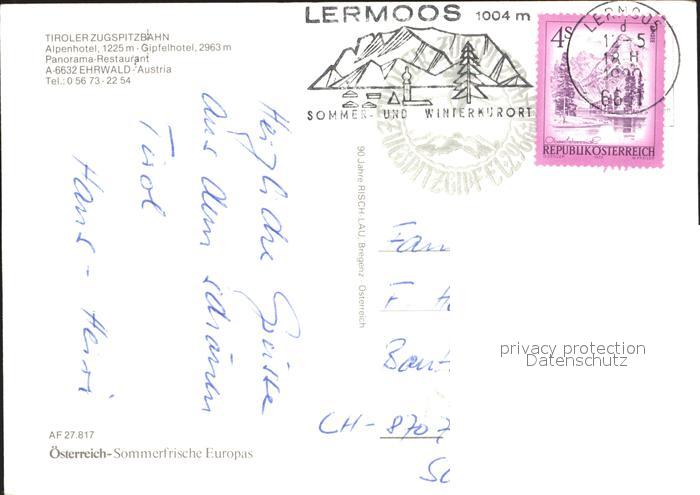 TIROLER ZUGSPITZBAHN
Alpenhotel, 1225 m · Gipfelhotel, 2963 m
Panorama-Restaurant
A-6632 EHRWALD · Austria
Tel.: 0 56 73 - 22 54
LERMOOS 1004 m
SOMMER- UND WINTERKURORT
LERMOOS
ZUGSPITZGIPFEL
4 S
REPUBLIK ÖSTERREICH
Herzliche Grüsse
aus dem schönen
Tirol
Hans - Heiri
90 Jahre RISCH-LAU, Bregenz · Österreich
Fam
F. H
CH - 8707
privacy protection
Datenschutz
AF 27.817
Österreich - Sommerfrische Europas